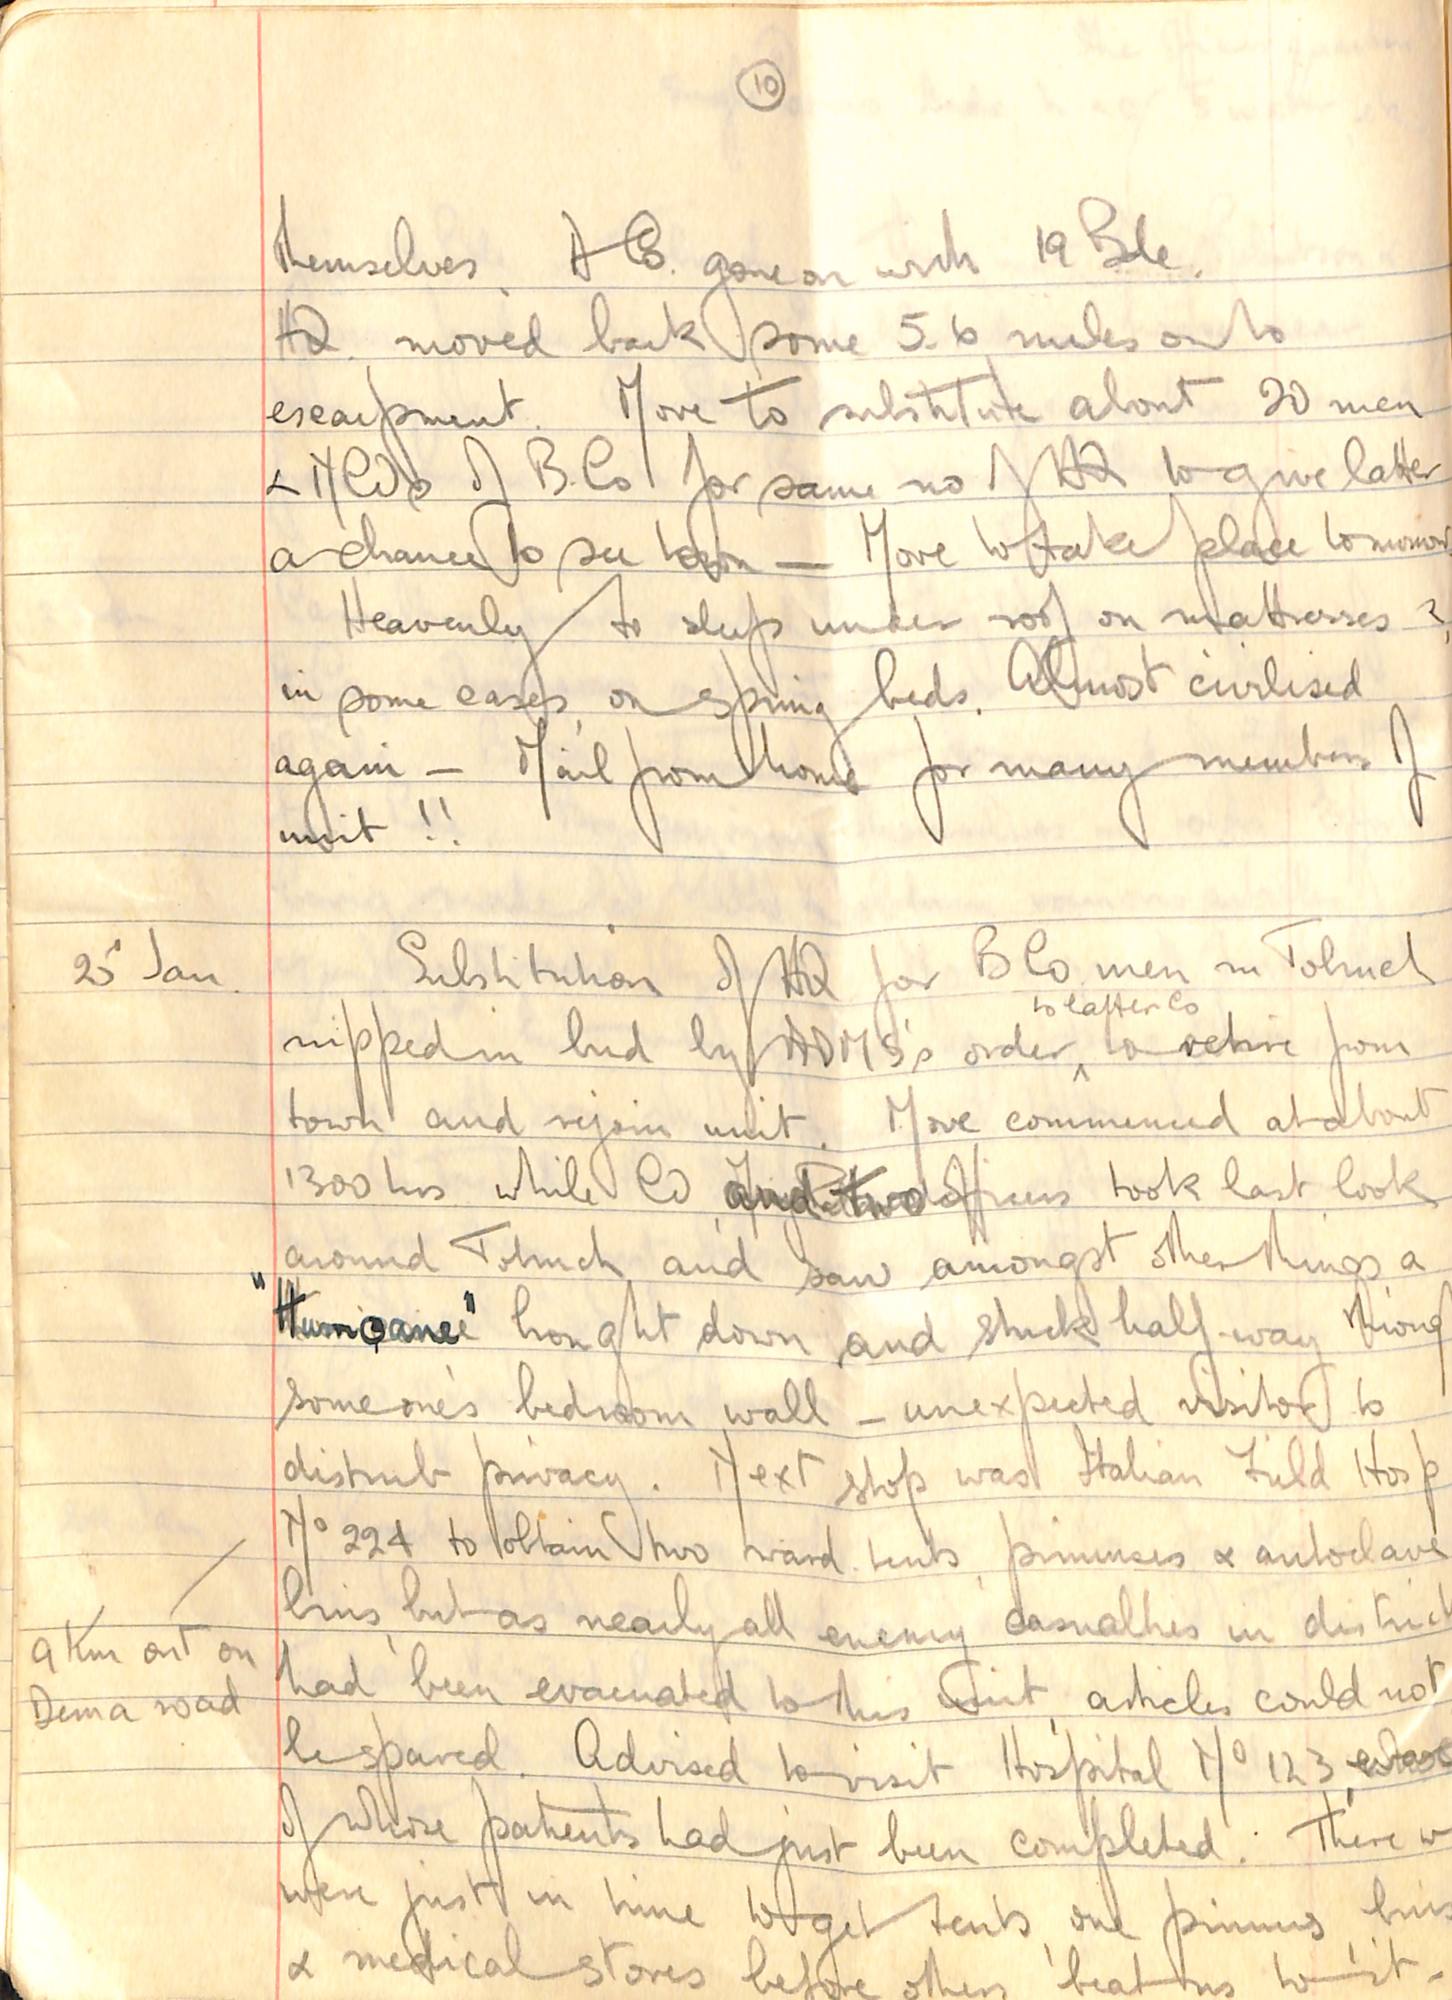 10
themselves. A Co. gone on with 19 Bde.
HQ. moved back some 5.6 miles on to
escarpment. Move to substitute about 20 men
& NCO's of B. Co for same no of HQ to give latter
a chance to see town — Move to take place tomorrow
Heavenly to sleep under roof on mattresses &,
in some cases, on spring beds. Almost civilised
again — Mail from home for many members of
unit !!
25 Jan.
Substitution of HQ for B Co men in Tobruch
nipped in bud by ADMS's order
to latter Co
to retire from
town and rejoin unit. Move commenced at about
1300 hrs while CO and two officers took last look
around Tobruch and saw amongst other things a
"Hurricane" bought down and stuck half-way through
someone's bedroom wall – unexpected visitor to
distrub privacy. Next stop was Italian Field Hosp
No 224 to obtain two ward tents, primuses & autoclave
bins, but as nearly all enemy casualties in district
9 Km out on
Derna road
had been evacuated to this Unit, articles could not
be spared. Advised to visit Hospital No 123
of whose patients had just been completed. There w
were just in time to get tents, one primus, bins
& medical stores before others beat us to it -